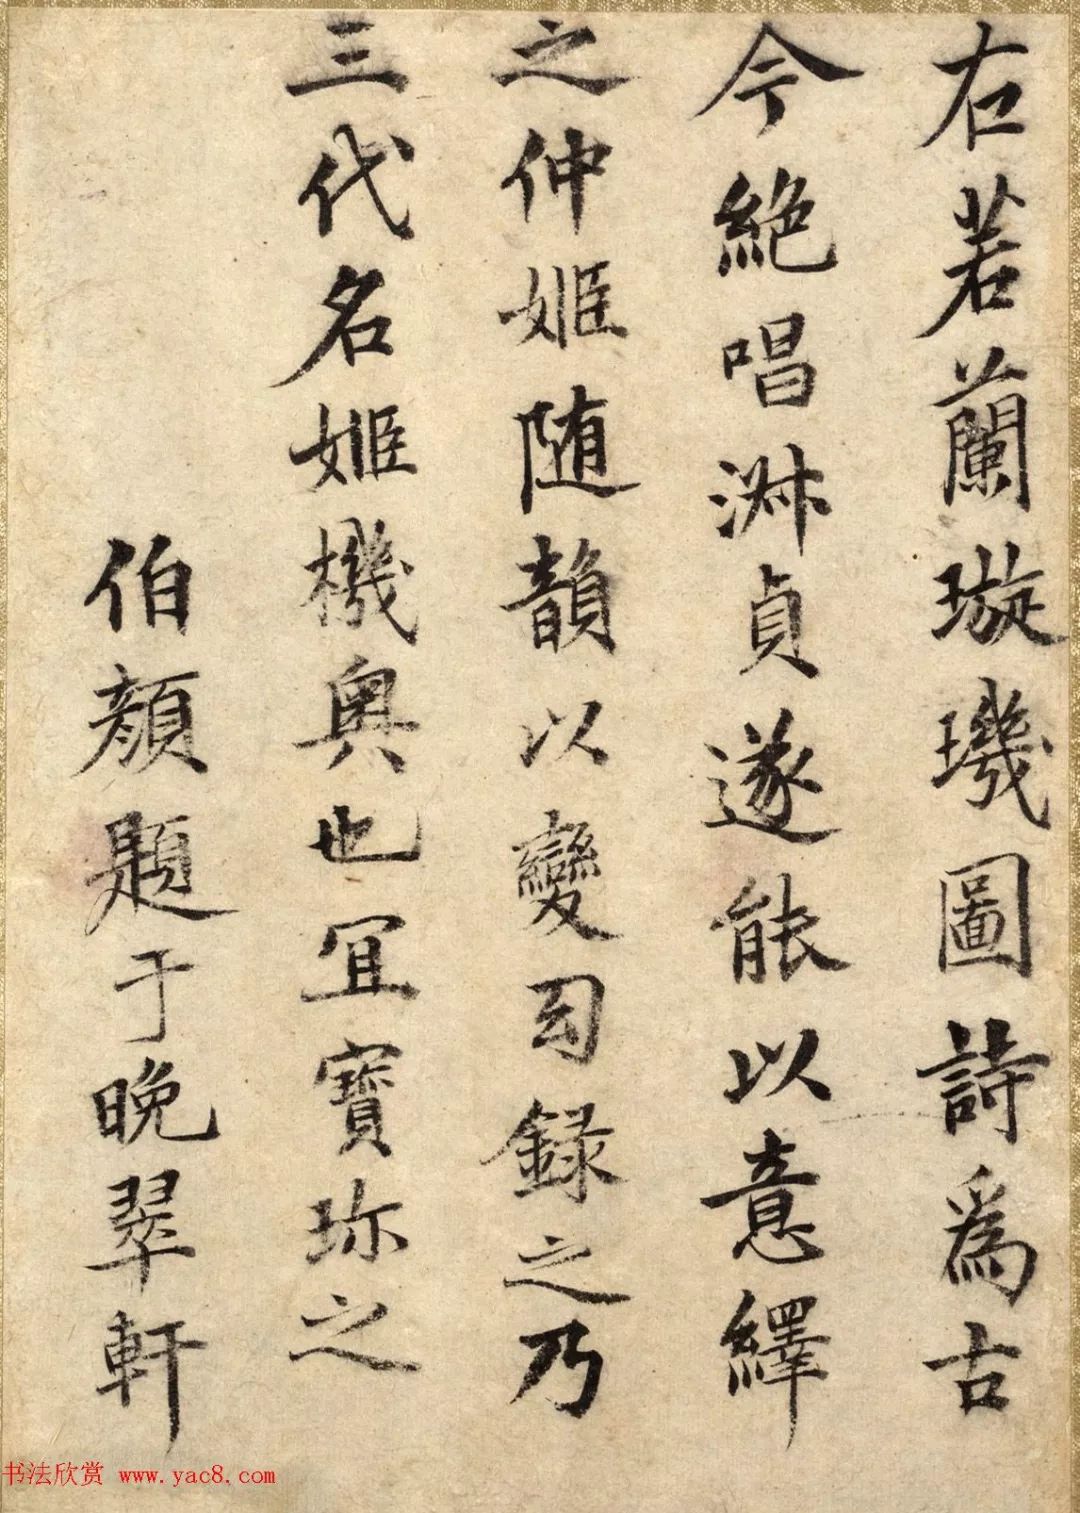 右若蘭璇璣圖詩爲古
今絶唱淋貞遂能以意繹
之仲姬随韻以變司録之乃
三代名姬機奥也冝寶珎之
伯顔題于晩翠軒
书法欣赏 www.yac8.com